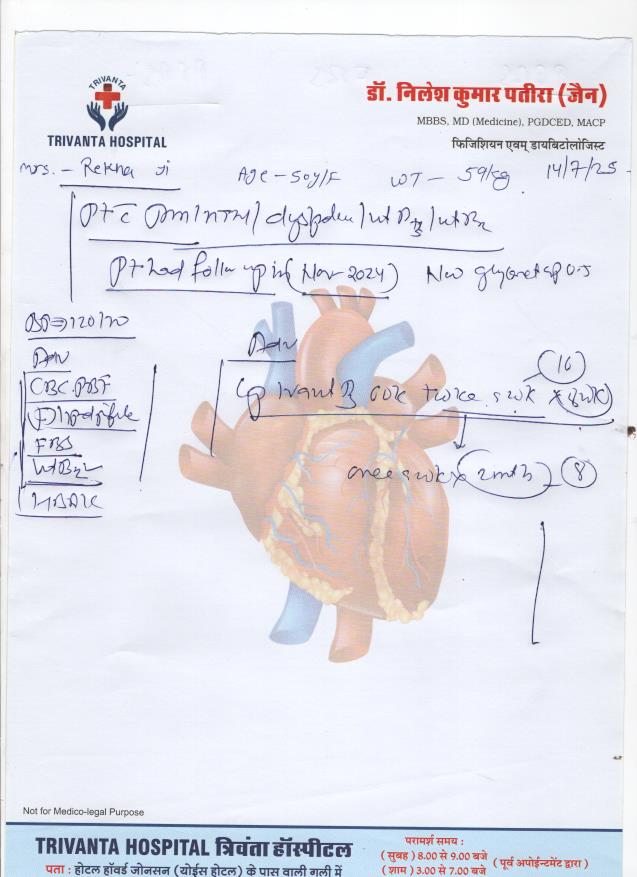 TRIVANTA
TRIVANTA HOSPITAL
डॉ. निलेश कुमार पतीरा (जैन)
MBBS, MD (Medicine), PGDCED, MACP
फिजिशियन एवम् डायबिटोलॉजिस्ट
Mrs. - Rekha ji Age - 50y/F WT - 59kg 14/7/25
DM/HTN/dyspdeu/vit D3/vit B12
Pt had follow up in (Nov-2024) Now
BP⇒120/70
Adv
CBC.PBF
Lipid profile
FBS
vit B12
HBA1C
Adv
twice a wk x 8wk) (16)
once a wk x 2mth (8)
Not for Medico-legal Purpose
TRIVANTA HOSPITAL त्रिवंता हॉस्पीटल
पता : होटल हॉवर्ड जोनसन (योईस होटल) के पास वाली गली में
परामर्श समय :
( सुबह ) 8.00 से 9.00 बजे
( शाम ) 3.00 से 7.00 बजे
(पूर्व अपोईन्टमेंट द्वारा )